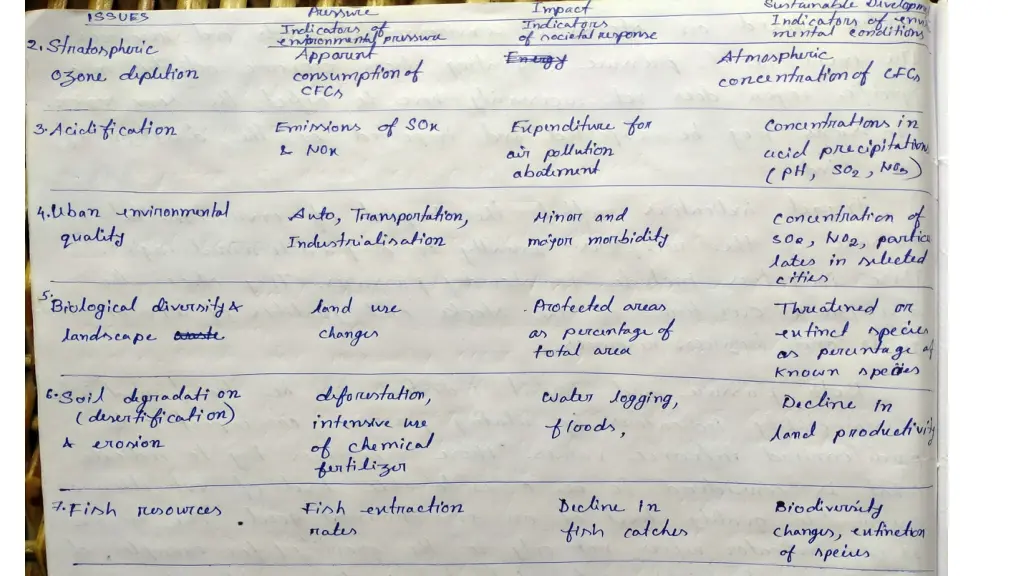 ISSUES Pressure Impact Sustainable Developm
Indicators of environmental pressure
Indicators of societal response
Indicators of envi
mental conditions
2. Stratospheric
Ozone depletion
Apparent
consumption of
CFCs
Energy
Atmospheric
concentration of CFCs
3. Acidification
Emissions of SOx
& NOx
Expenditure for
air pollution
abatement
Concentrations in
acid precipitation
(PH, SO2, NO3)
4. Urban environmental
quality
Auto, Transportation,
Industrialisation
Minor and
mayor morbidity
Concentration of
SO2, NO2, particu
lates in selected
cities
5. Biological diversity &
landscape waste
land use
changes
Protected areas
as percentage of
total area
Threatened or
extinct species
as percentage of
known species
6. Soil degradation
(desertification)
& erosion
deforestation,
intensive use
of chemical
fertilizer
Water logging,
floods,
Decline in
land productivi
7. Fish resources
Fish extraction
rates
Decline in
fish catches
Biodiversity
changes, extinction
of species